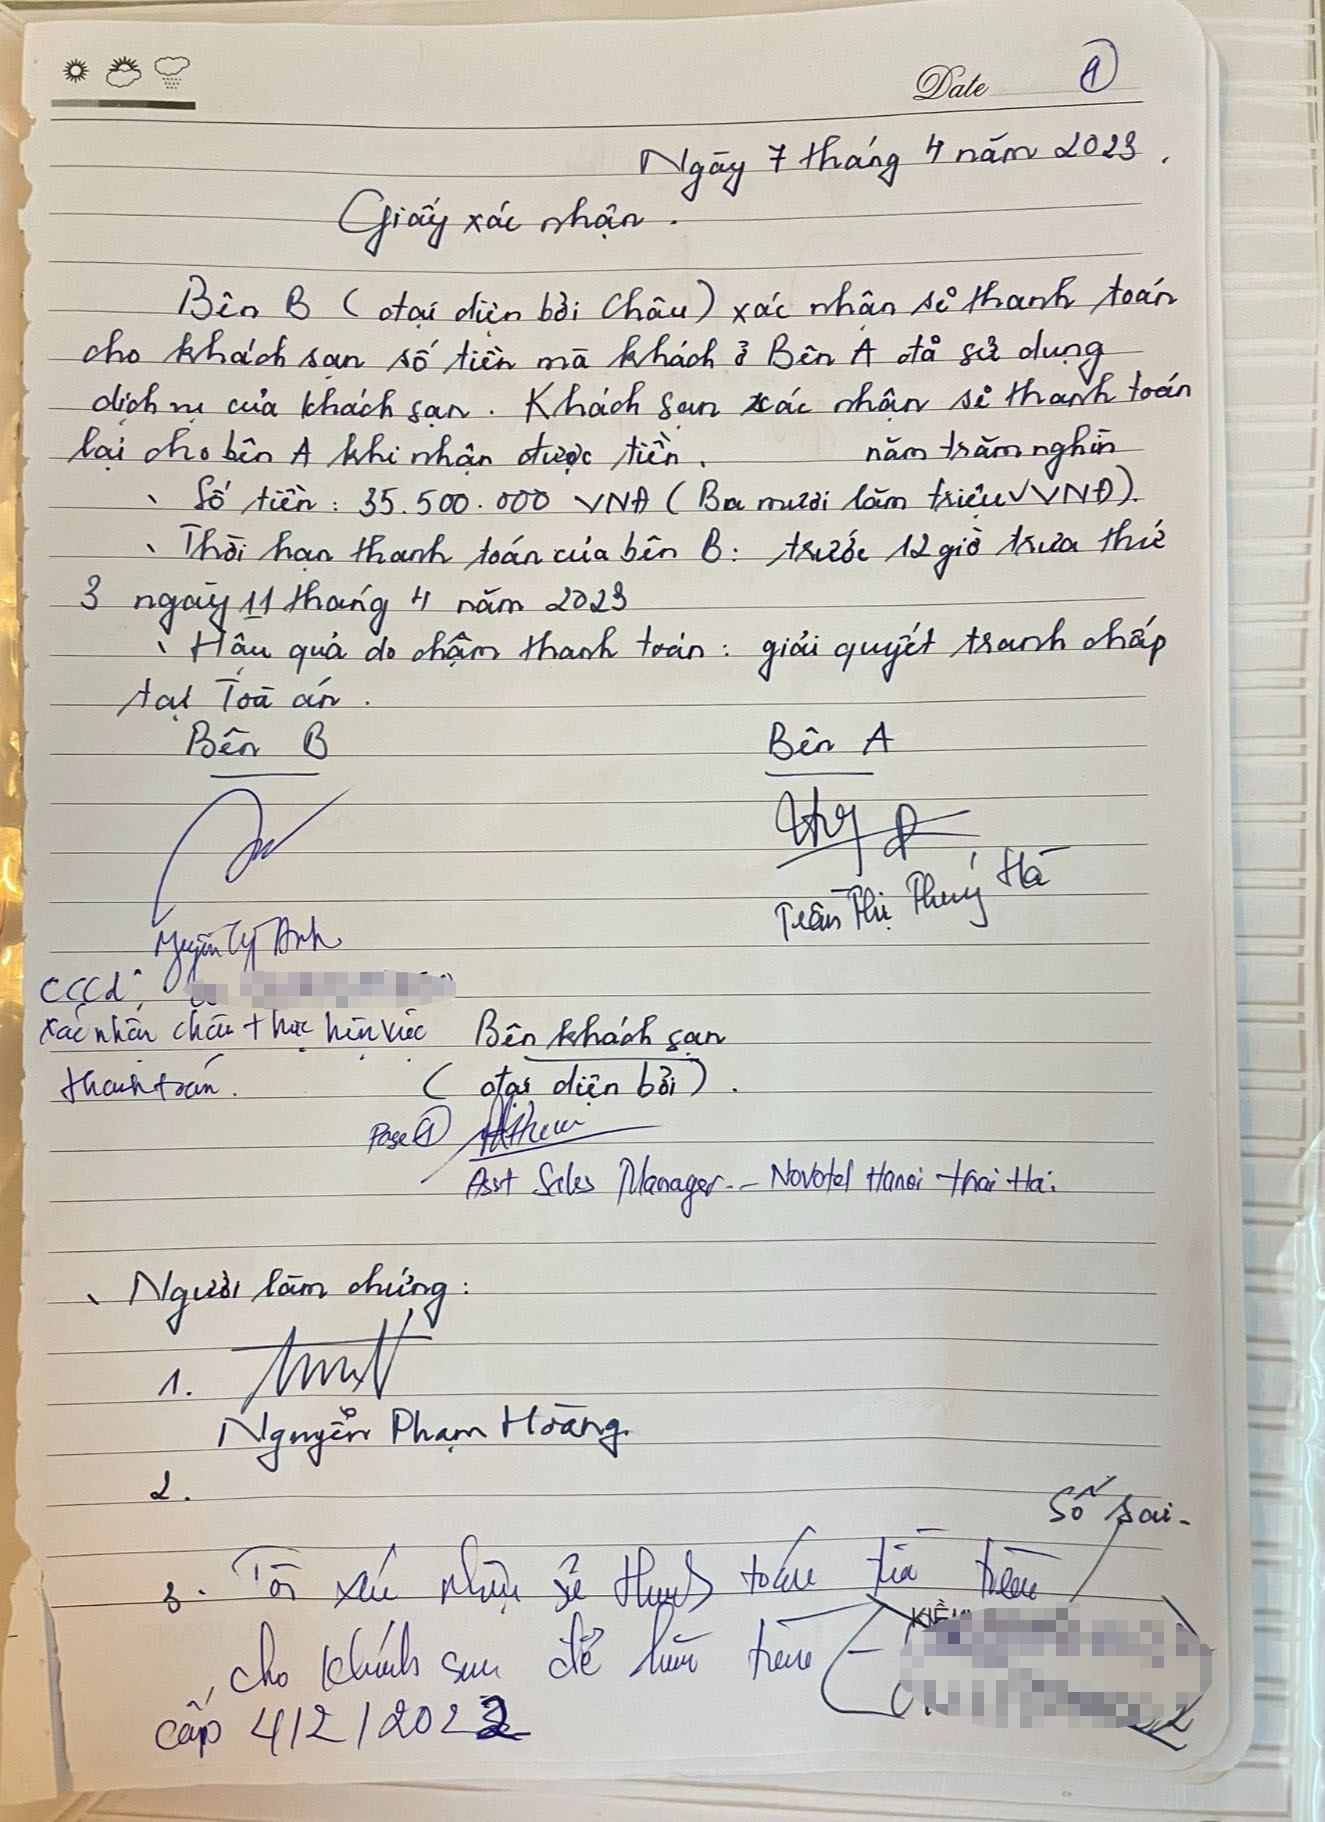 Date 1
Ngày 7 tháng 4 năm 2023.
Giấy xác nhận.
Bên B (đại diện bởi Châu) xác nhận sẽ thanh toán
cho khách sạn số tiền mà khách ở Bên A đã sử dụng
dịch vụ của khách sạn. Khách sạn xác nhận sẽ thanh toán
lại cho bên A khi nhận được tiền.
năm trăm nghìn
Số tiền: 35.500.000 VNĐ (Ba mươi lăm triệu √ VNĐ).
Thời hạn thanh toán của bên B: trước 12 giờ trưa thứ
3 ngày 11 tháng 4 năm 2023
Hậu quả do chậm thanh toán: giải quyết tranh chấp
tại Toà án.
Bên B Bên A
Trần Thị Thuý Hà
Nguyễn Lý Anh
CCCD:
xác nhận Châu thực hiện việc
thanh toán.
Bên khách sạn
(đại diện bởi).
Page 1
Asst Sales Manager - Novotel Hanoi Thai Ha.
Người làm chứng:
1.
Nguyễn Phạm Hoàng.
2.
Số sai.
3. Tôi xác nhận sẽ thanh toán tiền
cho khách sạn để
cấp 4/2/2022